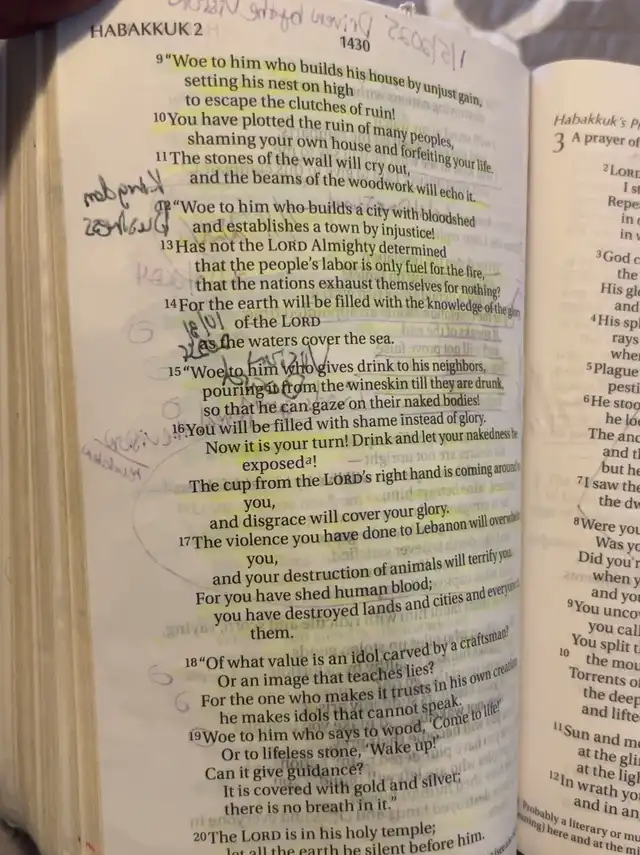 HABAKKUK 2
1430
9 “Woe to him who builds his house by unjust gain,
setting his nest on high
to escape the clutches of ruin!
10 You have plotted the ruin of many peoples,
shaming your own house and forfeiting your life.
11 The stones of the wall will cry out,
and the beams of the woodwork will echo it.
“Woe to him who builds a city with bloodshed
and establishes a town by injustice!
13 Has not the LORD Almighty determined
that the people's labor is only fuel for the fire,
that the nations exhaust themselves for nothing?
14 For the earth will be filled with the knowledge of the glory
of the LORD
as the waters cover the sea.
15 “Woe to him who gives drink to his neighbors,
pouring it from the wineskin till they are drunk,
so that he can gaze on their naked bodies!
16 You will be filled with shame instead of glory.
Now it is your turn! Drink and let your nakedness be
exposed a!
The cup from the LORD's right hand is coming around
you,
and disgrace will cover your glory.
17 The violence you have done to Lebanon will overwhelm
you,
and your destruction of animals will terrify you.
For you have shed human blood;
you have destroyed lands and cities and everyone
them.
18 “Of what value is an idol carved by a craftsman?
Or an image that teaches lies?
For the one who makes it trusts in his own creation
he makes idols that cannot speak.
19 Woe to him who says to wood, ‘Come to life!’
Or to lifeless stone, ‘Wake up!’
Can it give guidance?
It is covered with gold and silver;
there is no breath in it.”
20 The LORD is in his holy temple;
let all the earth be silent before him.
Kingdom
Habakkuk's
3 A prayer of
2 LORD
I
Repe
in
in
3 God
the
His
and
4 His
rays
5 Plague
6 He stoo
he
The
and
but he
7 I saw the
the
8 Were you
Was
Did you
when
and
9 You
you
You split
10 the
Torrents of
the deep
and
11 Sun and
at the
at the
12 In wrath
and in
Probably a literary or
here and at the